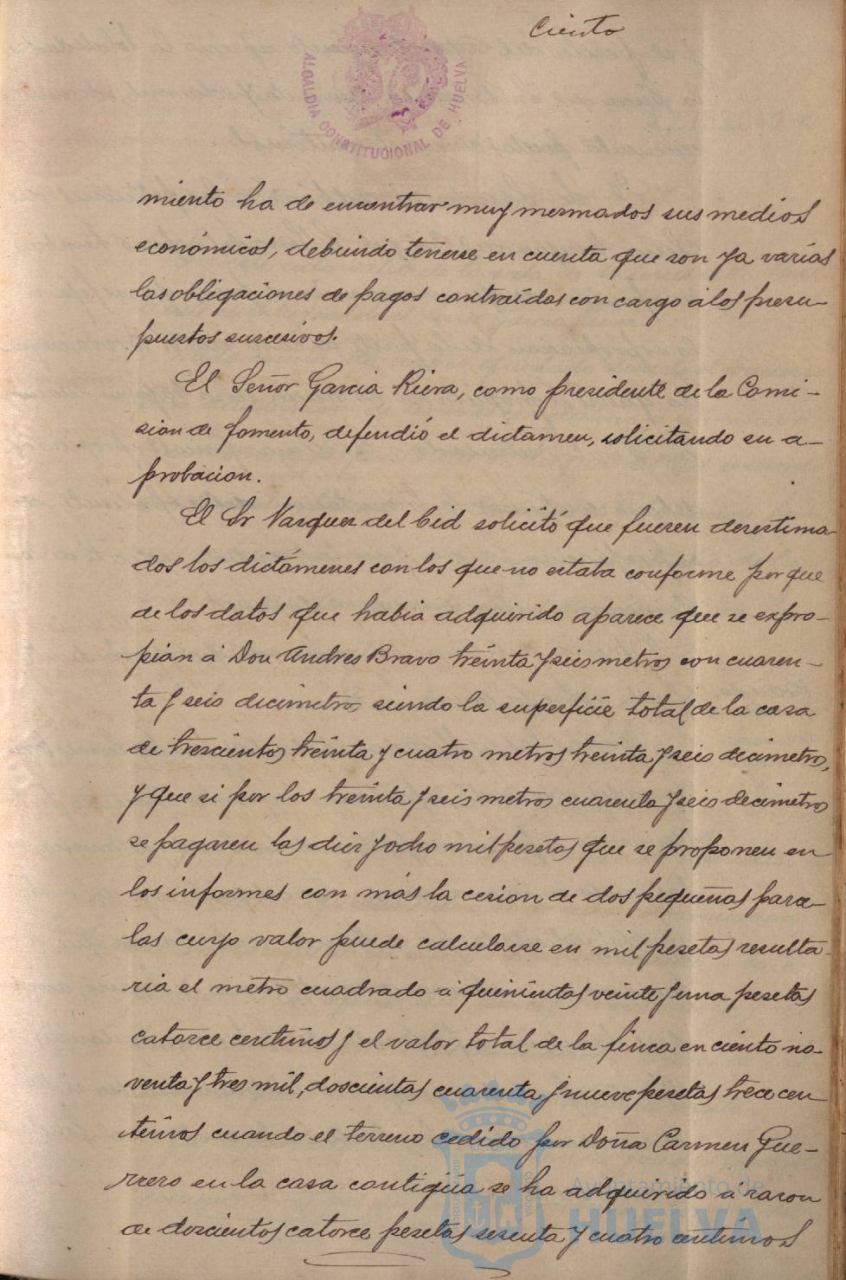 Ciento
ALCALDIA CONSTITUCIONAL DE HUELVA
miento ha de encontrar muy mermados sus medios
económicos, debiendo tenerse en cuenta que son ya varias
las obligaciones de pagos contraídas con cargo á los presu-
puestos sucesivos.
El Señor Garcia Riera, como presidente de la Comi-
sion de fomento, defendió el dictamen, solicitando su a-
probacion.
El Sr Vazquez del Cid solicitó que fueren desestima-
dos los dictámenes con los que no estaba conforme por que
de los datos que habia adquirido aparece que se expro-
pian á Don Andres Bravo treinta y seis metros con cuaren-
ta y seis decimetros siendo la superficie total de la casa
de trescientos treinta y cuatro metros treinta y seis decimetros,
y que si por los treinta y seis metros cuarenta y seis decimetros
se pagaren las diez y ocho mil pesetas que se proponen en
los informes con más la cesion de dos pequeñas parce-
las cuyo valor puede calcularse en mil pesetas resulta-
ria el metro cuadrado á quinientas veinte y una pesetas
catorce centimos y el valor total de la finca en ciento no-
venta y tres mil, doscientas cuarenta y nueve pesetas trece cen
timos cuando el terreno cedido por Doña Carmen Gue-
rrero en la casa contigüa se ha adquirido a razon
de doscientos catorce pesetas sesenta y cuatro centimos
Ayuntamiento de
HUELVA